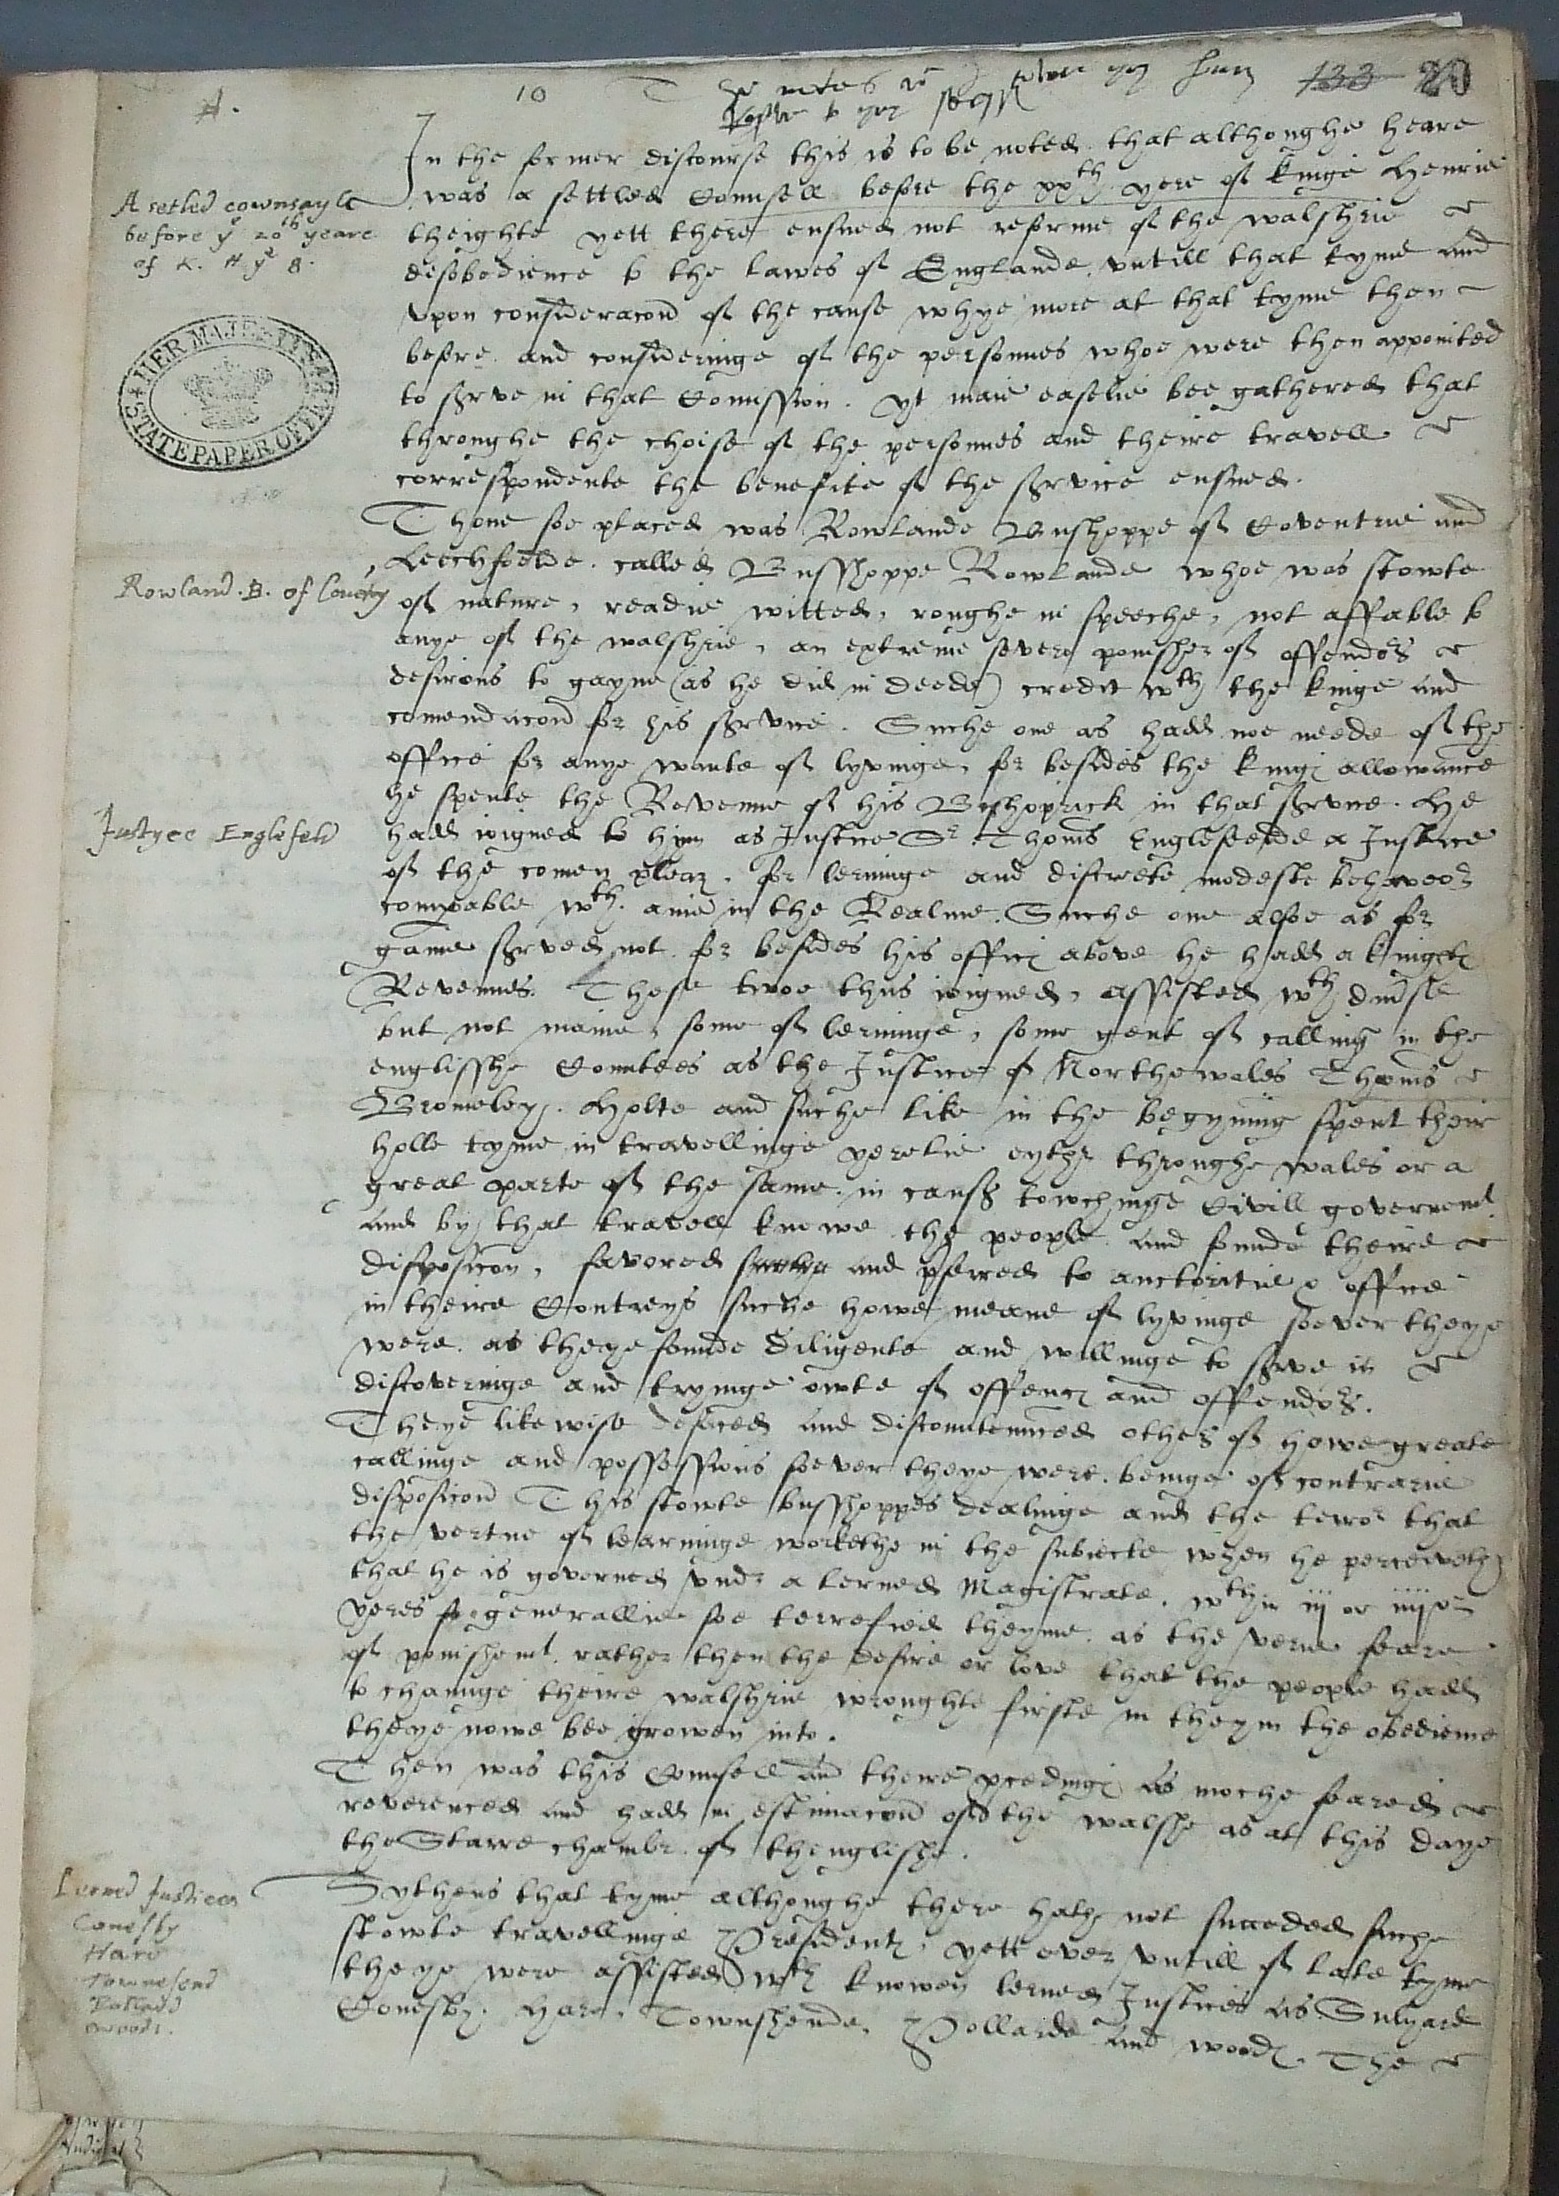 A.
10
133 20
In the former discourse this is to be noted that althoughe heare
was a settled Counsell before the xxth yere of kinge Henrie
theighte yett there ensued not reforme of the walshrie &
disobedience to the lawes of Englande untill that tyme and
upon consideracon of the cause whye more at that tyme then
before and consideringe of the personnes whoe were then appointed
to serve in that Comission. yt maie easelie bee gathered that
throughe the choise of the personnes and theire travell &
correspondente the benefite of the service ensued.
A setled cownsayle
before ye 20th yeare
of K. H ye 8.
HER MAJESTY'S STATE PAPER OFFICE
Thone soe placed was Rowlande Bushoppe of Coventrie and
Leechfeelde. called Busshoppe Rowlande whoe was stowte
of nature, readie witted, roughe in speeche, not affable to
anye of the walshrie, an extreme severe ponisher of offendors &
desirous to gayne (as he did in deede) credit wth the kinge and
comendacon for his service. Suche one as hadd noe neede of the
office for anye wante of lyvinge, for besides the kings allowance
he spente the Revenue of his Bishoprick in that service. He
hadd ioigned to him as Justice Sr Thoms Englefeelde a Justice
of the comen pleaz. for lerninge and discrete modeste behaveor
compable wth anie in the Realme. Suche one alsoe as for
gaine served not for besides his office above he hadd a knights
Revenues. These twoe thus ioigned, assisted wth
but not manie, some of lerninge, some gent of calling in the
englisshe Counties as the Justice of Northewales Thoms &
Bromeley. Holte and suche like in the begynnig spent their
holle tyme in travellinge yerelie eyther throughe wales or a
great parte of the same in causes towchinge Civill governemt
and by that travell knowe the people and founde theire &
disposicon, favored suche and pferred to auctoritie & office
in theire Contreys suche howe meane of lyvinge soever theye
were. as theye founde diligente and willinge to serve in &
discoveringe and tryinge owte of offences and offendors.
Rowland. B. of Coventry
Justyce Englefeld
Theye likewise defaced and discountenanced others of howe greate
callinge and possessions soever theye were. beinge of contrarie
disposicon This stowte busshoppes dealinge and the terror that
the vertue of learninge workethe in the subiecte when he perceiveth
that he is governed under a lerned Magistrate. wthin iij or iiij
yeres generallie soe terrefied theyme. as the verie feare
of ponishemt. rather then the desire or love that the people hadd
to chaunge theire walshrie wroughte firste in theym the obedience
theye nowe bee growen into.
Then was this Counsell and theire pcedings as moche feared &
reverenced and hadd in estimacon of the walshe as at this daye
the Starre chamber of thenglishe.
Sythens that tyme althoughe there hath not succeded suche
stowte travellinge Presidents, yett ever untill of late tyme
theye were assisted wth knowen lerned Justices as Sulyard
Conesby. Hare, Townshende, Pollarde and woods. The &
Lerned Justices
Conesby
Hare
Townesend
Pollard
woods.